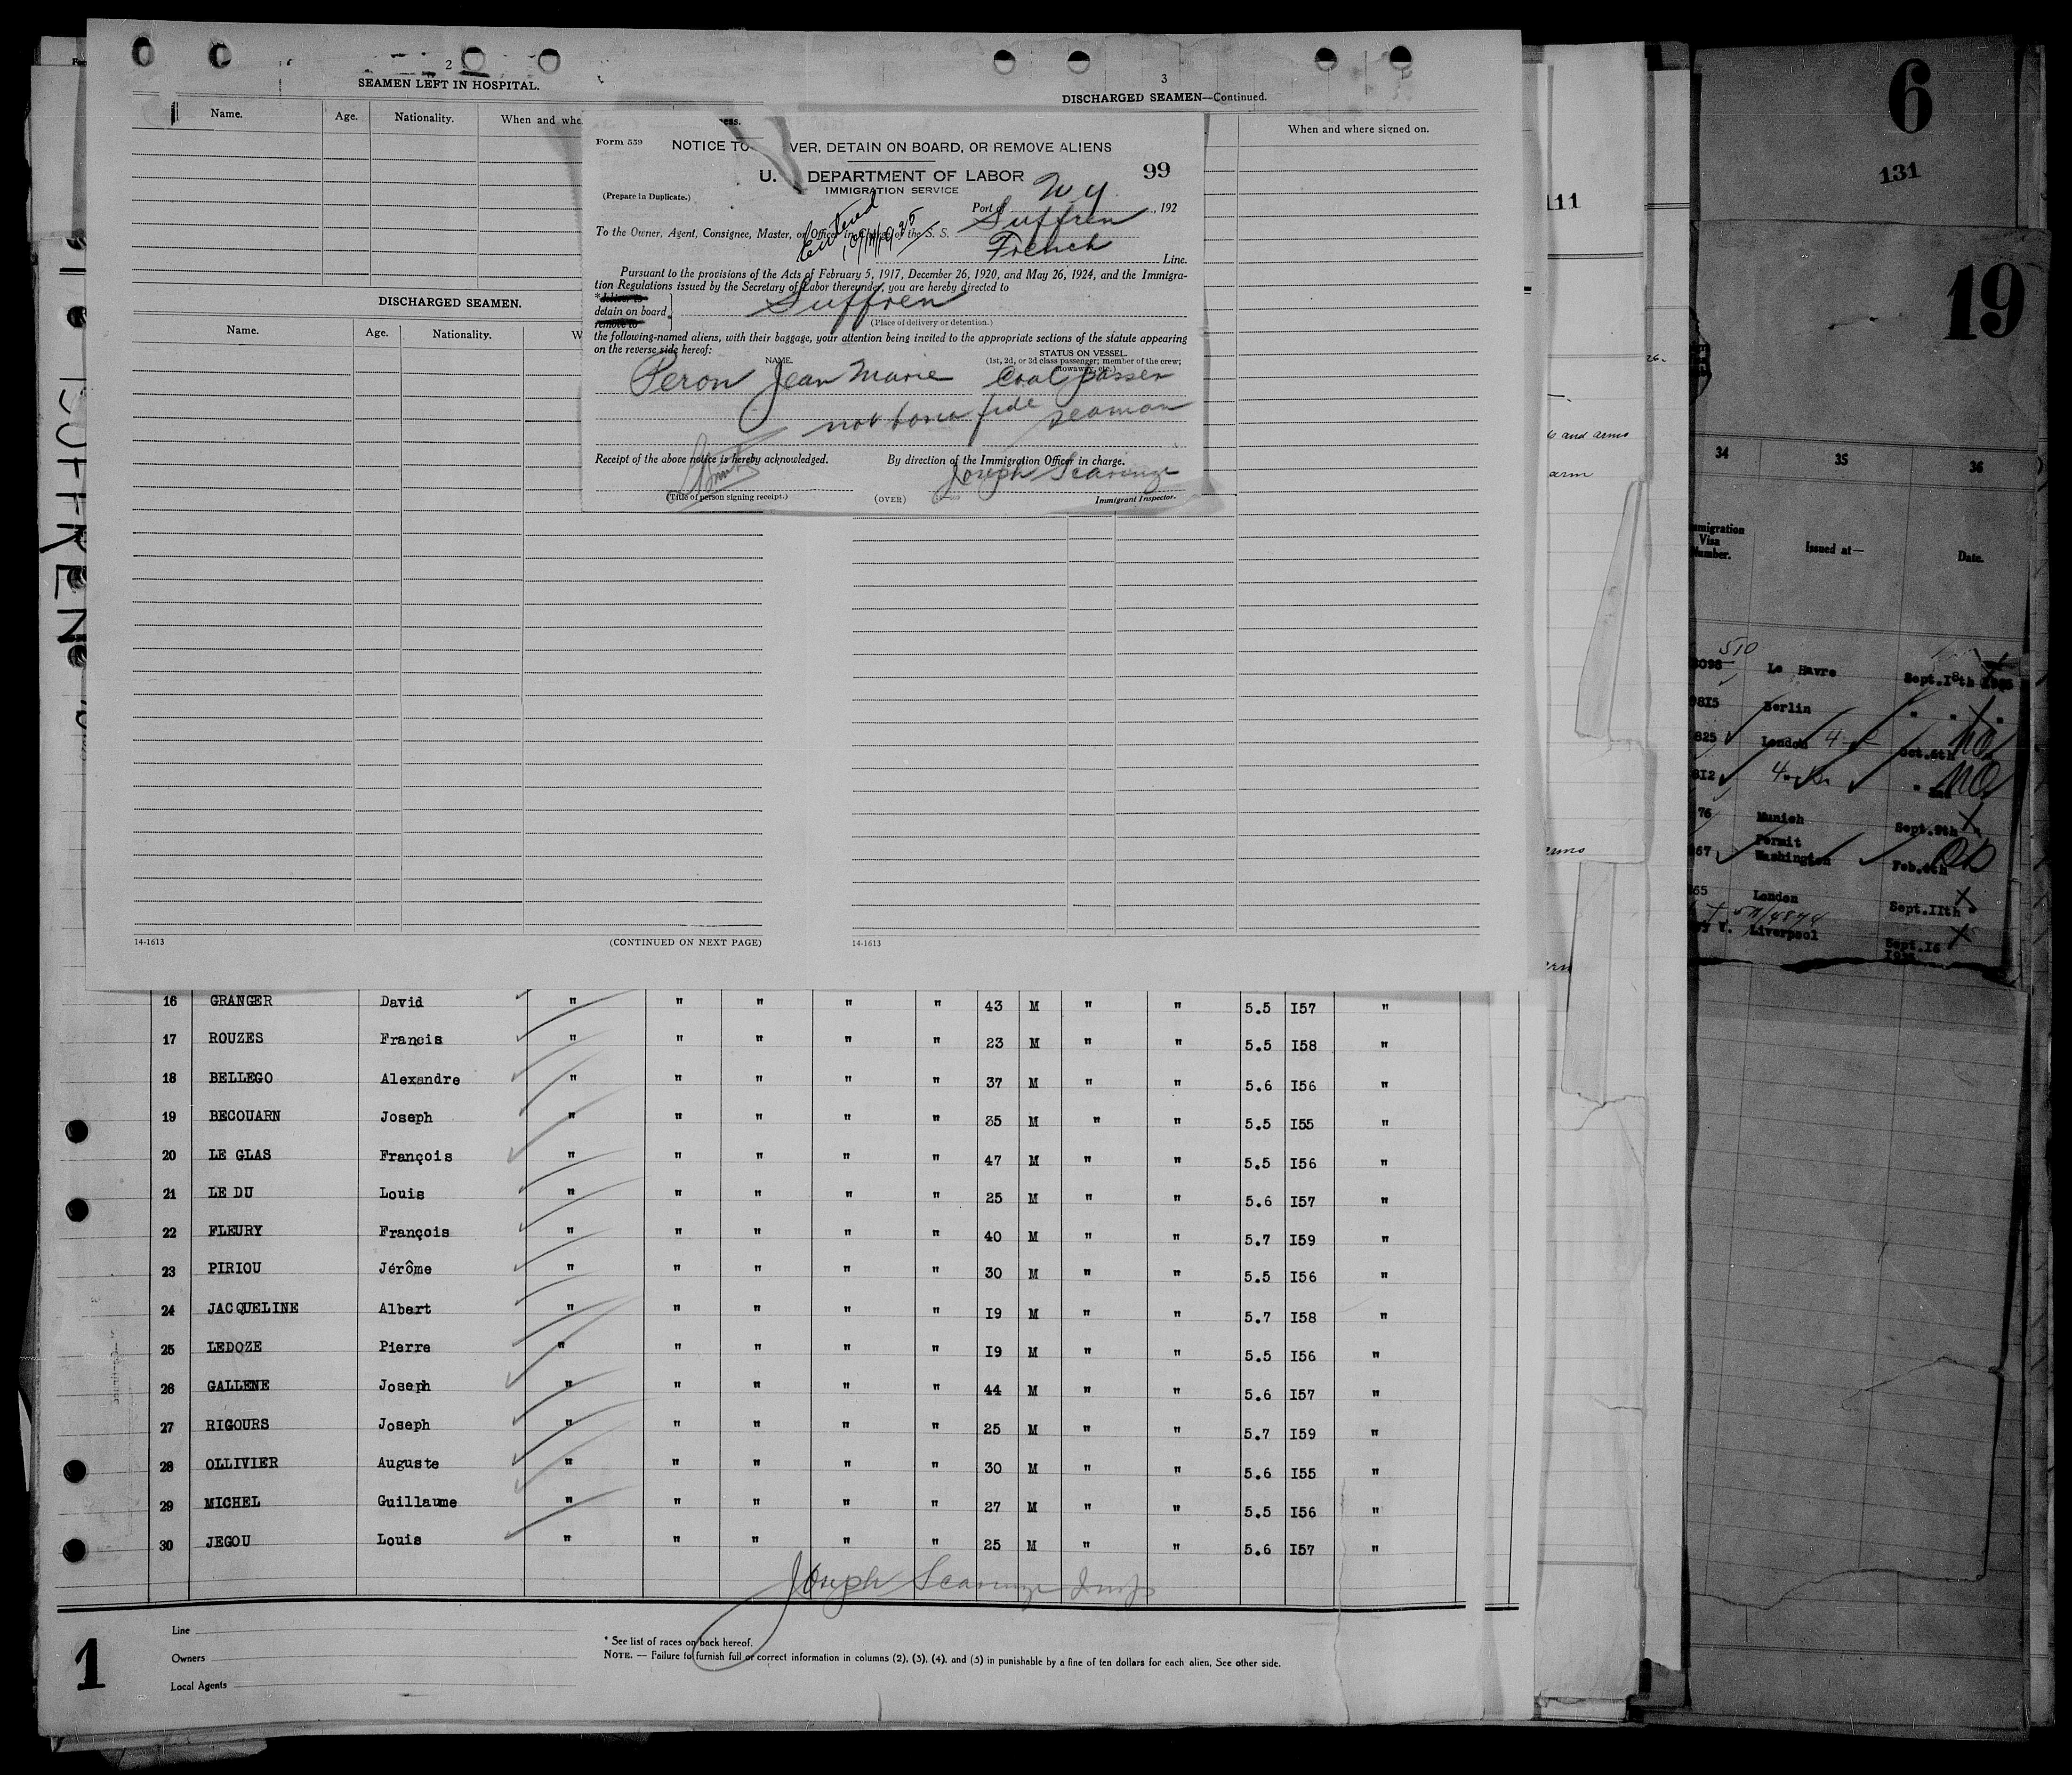 2
SEAMEN LEFT IN HOSPITAL.
Name. Age. Nationality. When and whe ess.
DISCHARGED SEAMEN.
Name. Age. Nationality. W
(CONTINUED ON NEXT PAGE)
14-1613
3
DISCHARGED SEAMEN—Continued.
When and where signed on.
14-1613
Form 559
NOTICE TO VER, DETAIN ON BOARD, OR REMOVE ALIENS
U. DEPARTMENT OF LABOR
99
IMMIGRATION SERVICE
(Prepare in Duplicate.)
Port of N Y, 192
Entered
To the Owner, Agent, Consignee, Master, or Officer in Charge of the S. S. Suffren
French Line.
Pursuant to the provisions of the Acts of February 5, 1917, December 26, 1920, and May 26, 1924, and the Immigra-
tion Regulations issued by the Secretary of Labor thereunder, you are hereby directed to
*deliver to
detain on board Suffren
remove to
(Place of delivery or detention.)
the following-named aliens, with their baggage, your attention being invited to the appropriate sections of the statute appearing
on the reverse side hereof:
NAME. STATUS ON VESSEL.
(1st, 2d, or 3d class passenger; member of the crew;
stowaway, etc.)
Peron Jean Marie Coal passer
not bona fide seaman
Receipt of the above notice is hereby acknowledged. By direction of the Immigration Officer in charge.
Joseph
(Title of person signing receipt.) (OVER) Immigrant Inspector.
16 GRANGER David " " " " " 43 M " " 5.5 I57 "
17 ROUZES Francis " " " " " 23 M " " 5.5 I58 "
18 BELLEGO Alexandre " " " " " 37 M " " 5.6 I56 "
19 BECOUARN Joseph " " " " " 35 M " " 5.5 I55 "
20 LE GLAS François " " " " " 47 M " " 5.5 I56 "
21 LE DU Louis " " " " " 25 M " " 5.6 I57 "
22 FLEURY François " " " " " 40 M " " 5.7 I59 "
23 PIRIOU Jérôme " " " " " 30 M " " 5.5 I56 "
24 JACQUELINE Albert " " " " " I9 M " " 5.7 I58 "
25 LEDOZE Pierre " " " " " I9 M " " 5.5 I56 "
26 GALLENE Joseph " " " " " 44 M " " 5.6 I57 "
27 RIGOURS Joseph " " " " " 25 M " " 5.7 I59 "
28 OLLIVIER Auguste " " " " " 30 M " " 5.6 I55 "
29 MICHEL Guillaume " " " " " 27 M " " 5.5 I56 "
30 JEGOU Louis " " " " " 25 M " " 5.6 I57 "
Joseph
1
Line
Owners
Local Agents
* See list of races on back hereof.
NOTE. — Failure to furnish full or correct information in columns (2), (3), (4), and (5) in punishable by a fine of ten dollars for each alien, See other side.
SUFFREN
111
26-
and arms
arm
6
131
19
34 35 36
mmigration
Visa
Number.
Issued at—
Date.
510
8098 Le Havre Sept.I8th
8I5 Berlin " " "
825 London Oct.
8I2 "
76 Munich Sept.9th
67 Permit
Washington Feb.4th
65 London Sept.IIth
Liverpool Sept.I6